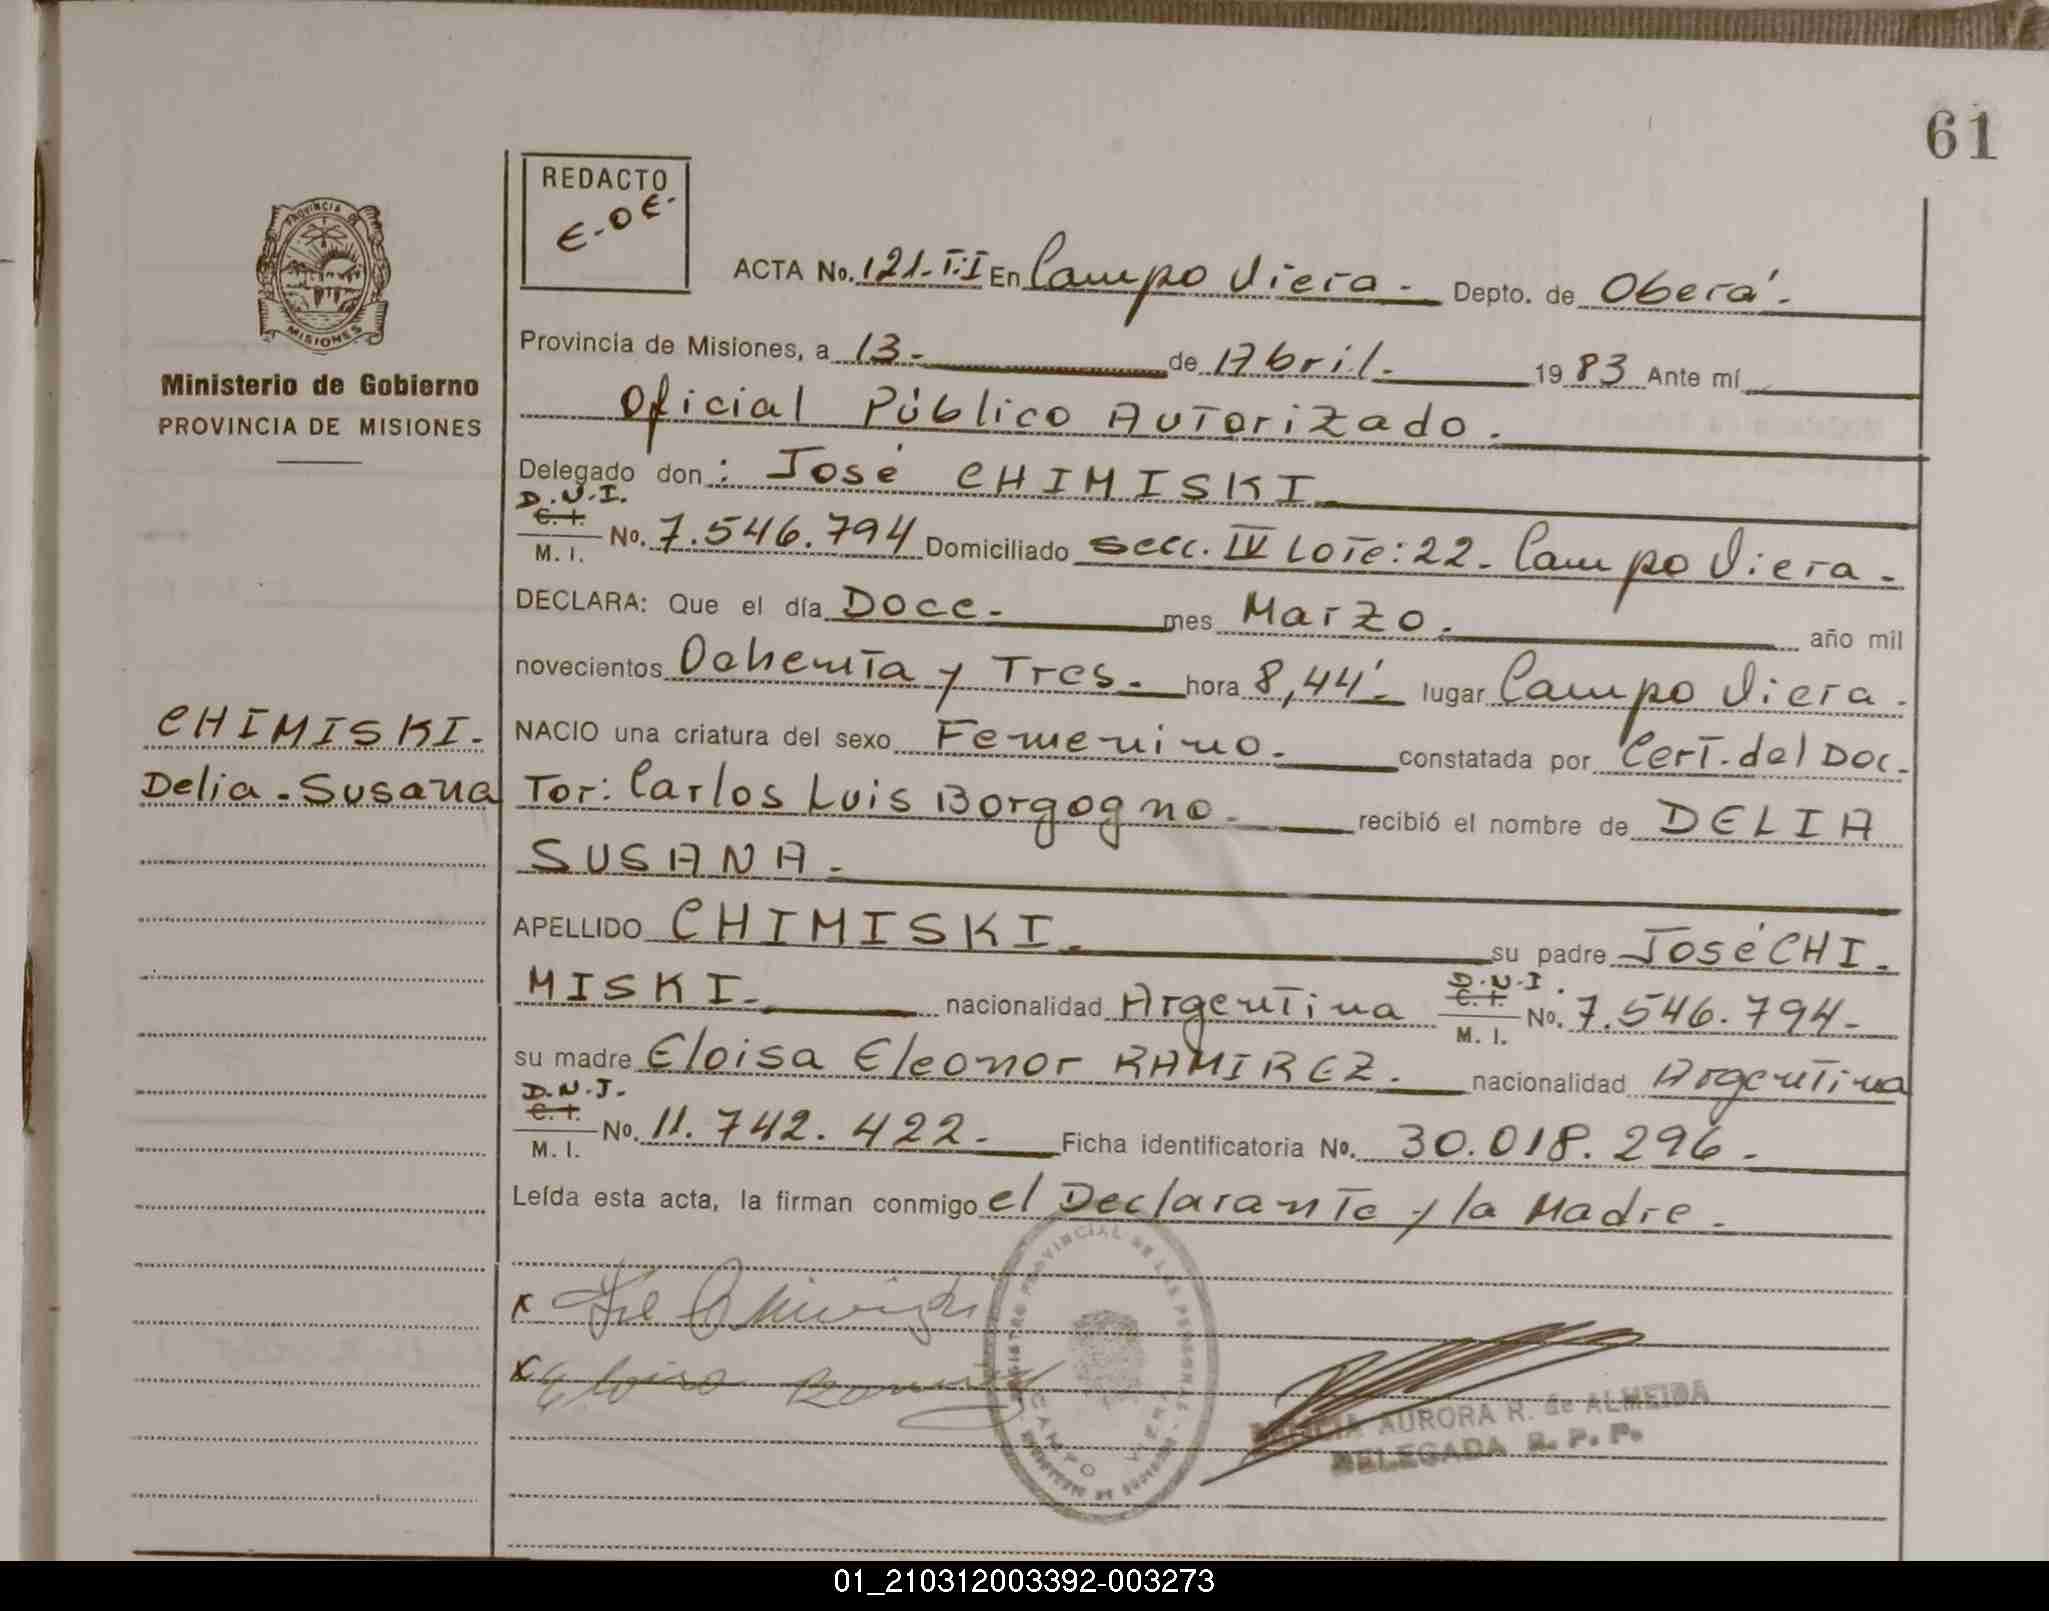 61
REDACTO
E-OE-
PROVINCIA DE
MISIONES
Ministerio de Gobierno
PROVINCIA DE MISIONES
ACTA No. 121-T:I En Campo Viera - Depto. de Oberá.
Provincia de Misiones, a 13- de Abril. 1983 Ante mí
Oficial Público Autorizado.
Delegado don: José CHIMISKI
D.N.I.
C. I.
M. I. No. 7.546.794 Domiciliado secc. IV Lote: 22- Campo Viera-
DECLARA: Que el día Doce- mes Marzo. año mil
novecientos Ochenta y Tres- hora 8,44'- lugar Campo Viera-
CHIMISKI-
Delia-Susana
NACIO una criatura del sexo Femenino- constatada por Cert. del Doc-
Tor: Carlos Luis Borgogno- recibió el nombre de DELIA
SUSANA-
APELLIDO CHIMISKI- su padre José CHI-
MISKI- nacionalidad Argentina D.N.I. C. I. M. I. No. 7.546.794-
su madre Eloisa Eleonor RAMIREZ. nacionalidad Argentina
D.N.I.
C. I.
M. I. No. 11.742.422- Ficha identificatoria No. 30.018.296-
Leída esta acta, la firman conmigo el Declarante y la Madre-
x
x Eloisa
REGISTRO PROVINCIAL DE LAS PERSONAS - MISIONES
CAMPO VIERA
AURORA R. de ALMEIDA
DELEGADA R. P. P.
01_210312003392-003273